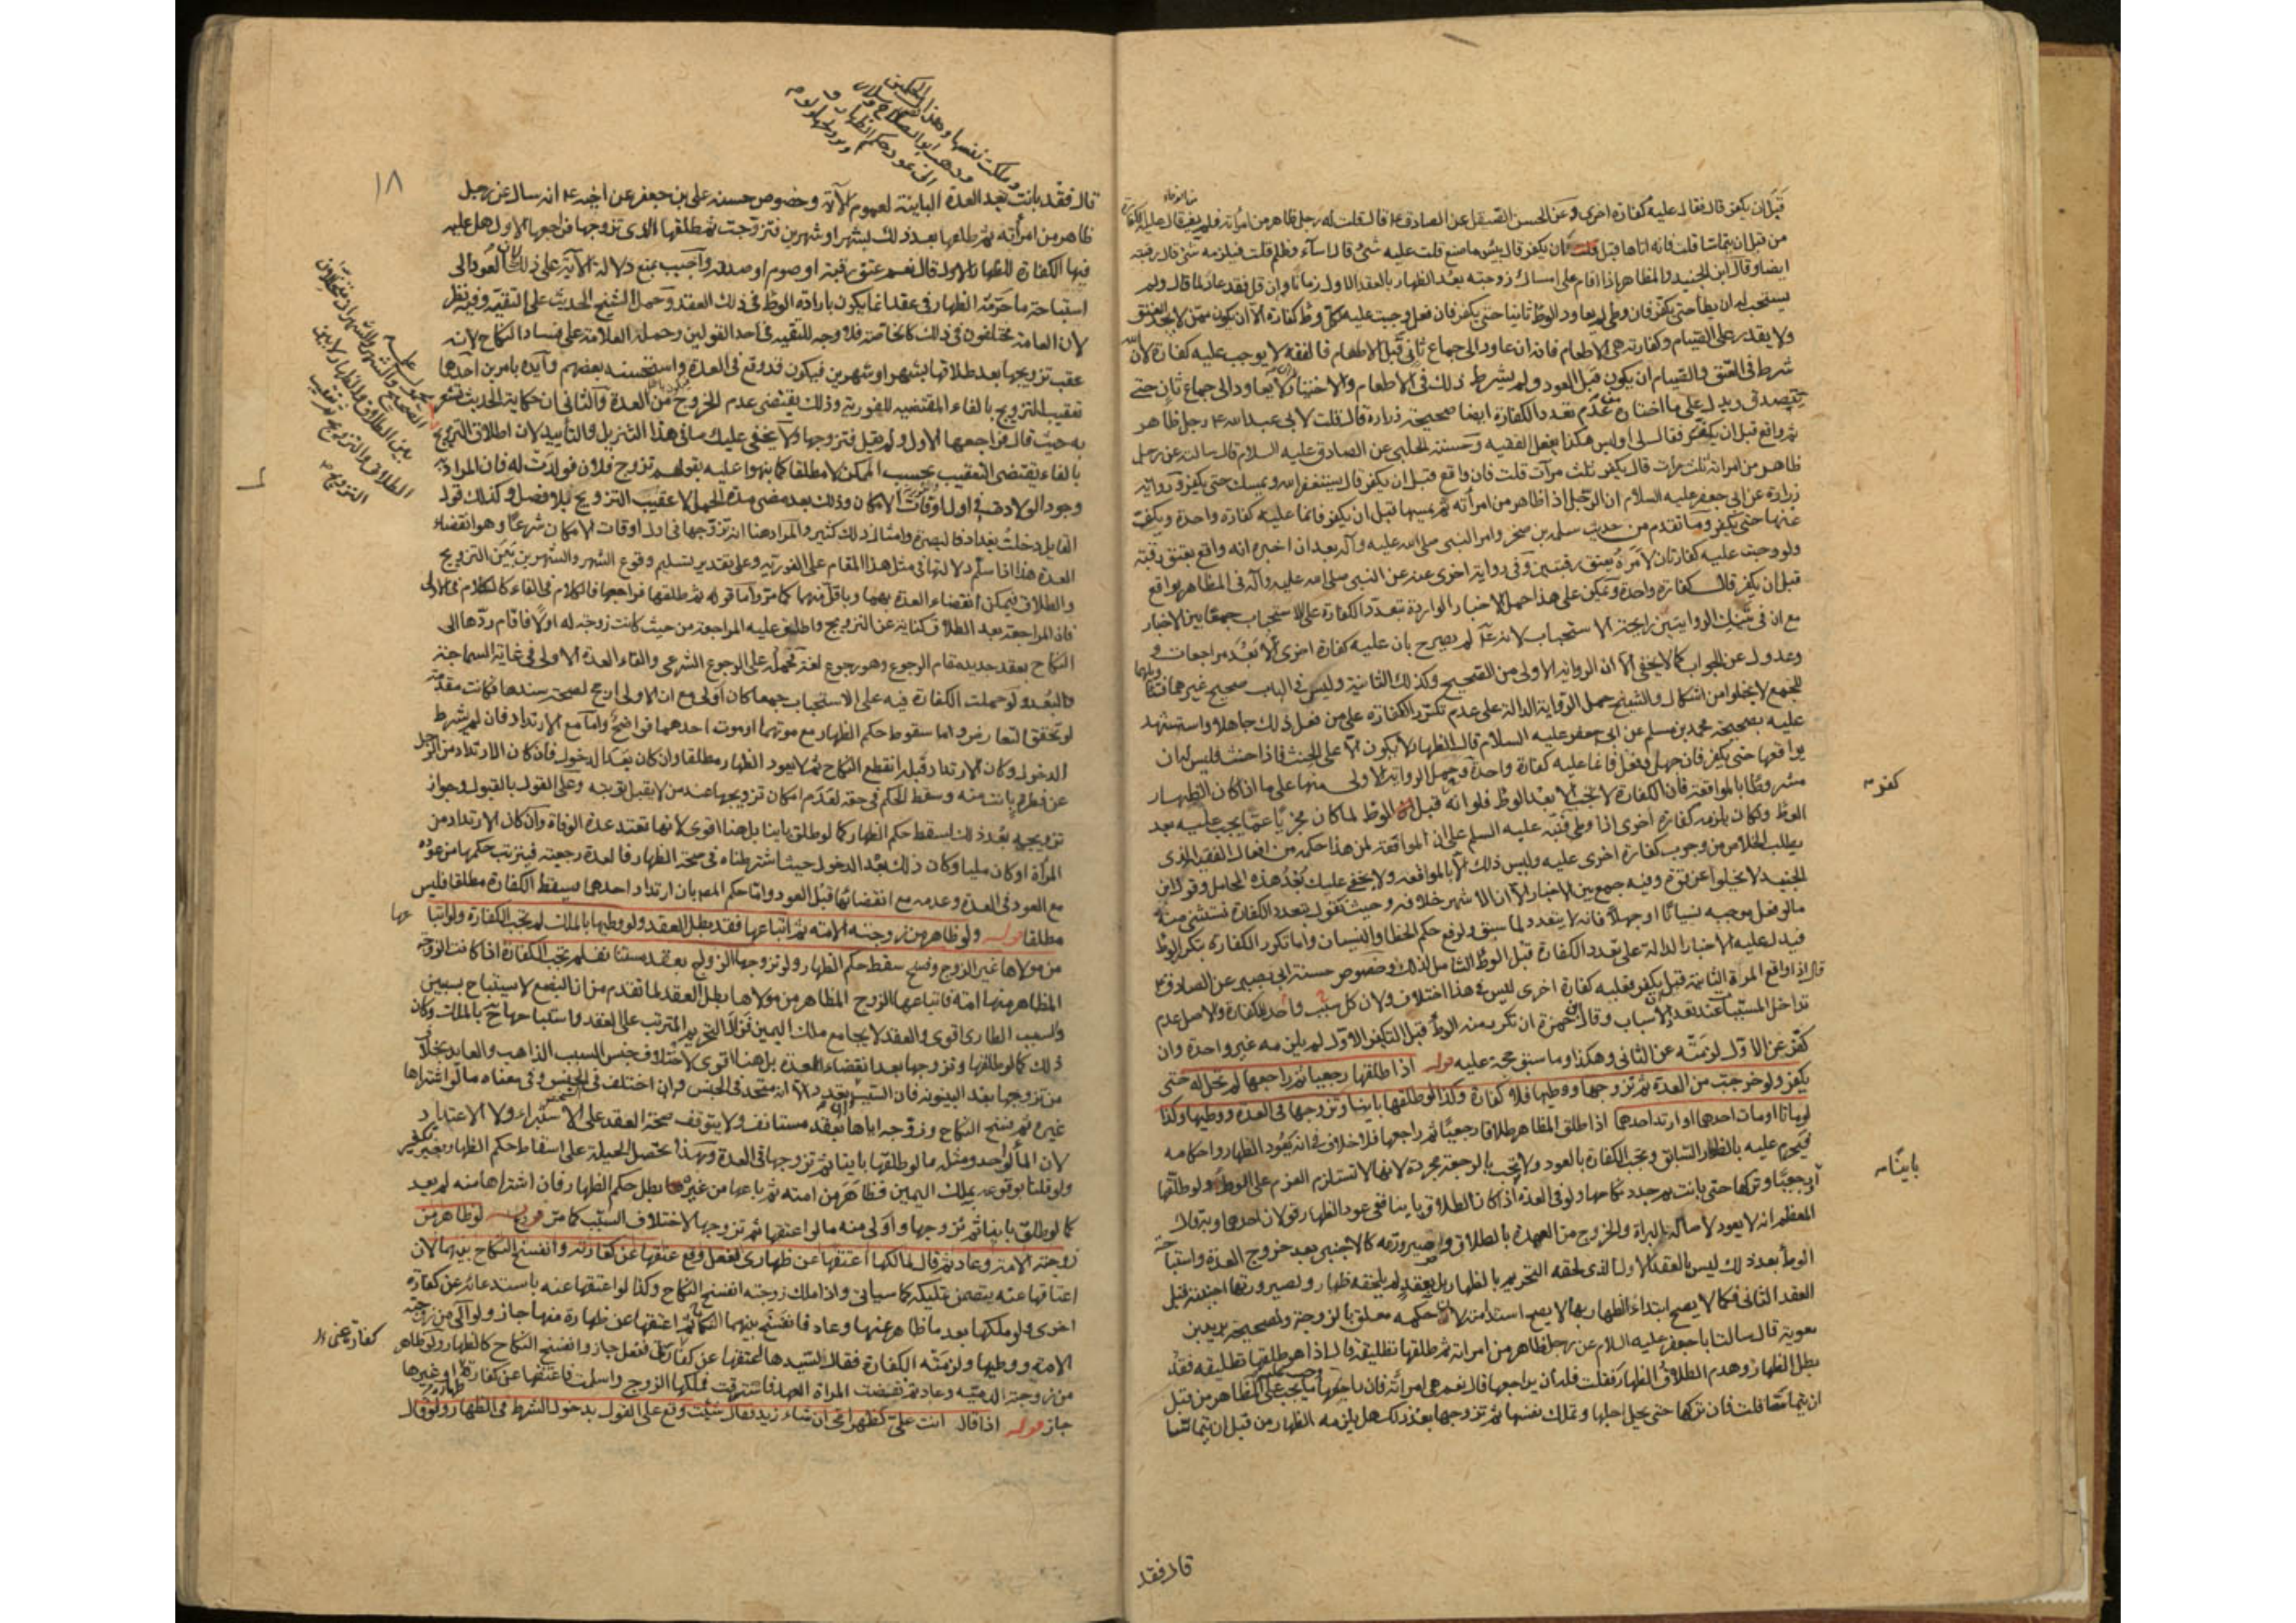 قبل ان يكفر قال فقال عليه كفارة اخرى وعن الحسن الصيقل عن الصادق ع قال قلت له رجل ظاهر من امرأته فلم يف قال عليه الكفارة
من قبل ان يتماسا قلت فانه اتاها قبل ان يكفر قال بئس ما صنع قلت عليه شئ قال اساء وظلم قلت فيلزمه شئ قال رقبة
ايضا وقال ابن الجنيد والمظاهر اذا اقام على امساك زوجته بعد الظهار بالعقد الاول زمانا وان قل فقد عاد لما قال ولم
يستحب له ان يطأ حتى يكفر فان وطئ لم يعاود الوطئ ثانيا حتى يكفر فان فعل وجبت عليه لكل وطئ كفارة الا ان يكون ممن لا يجد العتق
ولا يقدر على الصيام وكفارته هي الاطعام فانه ان عاود الى جماع ثان قبل الاطعام فالفقه لا يوجب عليه كفارة لان الله
شرط في العتق والصيام ان يكون قبل العود ولم يشرط ذلك في الاطعام والاختيار ان لا يعاود الى جماع ثان حتى
يتصدق ويدل على ما اختاره من عدم تعدد الكفارة ايضا صحيحة زرارة قال قلت لابي عبد الله ع رجل ظاهر
ثم واقع قبل ان يكفر فقال لي اوليس هكذا يفعل الفقيه وحسنة الحلبي عن الصادق عليه السلام قال سالته عن رجل
ظاهر من امراته ثلث مرات قال يكفر ثلث مرات قلت فان واقع قبل ان يكفر قال يستغفر الله ويمسك حتى يكفر ورواية
زرارة عن ابي جعفر عليه السلام ان الرجل اذا ظاهر من امرأته ثم يمسها قبل ان يكفر فانما عليه كفارة واحدة ويكف
عنها حتى يكفر وما تقدم من حديث سلمه بن صخر وامر النبي صلى الله عليه وآله بعد ان اخبره انه واقع بعتق رقبة
ولو وجبت عليه كفارتان لأمره بعتق رقبتين وفي رواية اخرى عنه عن النبي صلى الله عليه وآله في المظاهر يواقع
قبل ان يكفر قال كفارة واحدة ويمكن على هذا حمل الاخبار الواردة بتعدد الكفارة على الاستحباب جمعا بين الاخبار
مع ان في تينك الروايتين رايحة الاستحباب لانه ع لم يصرح بان عليه كفارة اخرى الا بعد مراجعات
وعدول عن الجواب كما لا يخفى الا ان الرواية الاولى من الصحيح وكذلك الثانية وليس في الباب صحيح غيرهما
للجمع لا يخلوا من اشكال والشيخ حمل الرواية الدالة على عدم تكرر الكفارة على من فعل ذلك جاهلا واستشهد
عليه بصحيحة محمد بن مسلم عن ابي جعفر عليه السلام قال الظهار لا يكون الا على الحنث فاذا حنث فليس له ان
يواقعها حتى يكفر فان جهل وفعل فانما عليه كفارة واحدة وحمل الرواية الاولى منها على ما اذا كان الظهار
مشروطا بالمواقعة فان الكفارة لا تجب الا بعد الوطئ فلو انه قبل الوطئ لما كان مجزيا عما يجب عليه بعد
الوطئ ولكان يلزمه كفارة اخرى اذا وطئ فنبه عليه السلم على ان المواقعة لمن هذا حكمه من افعال الفقيه الذي
يطلب الخلاص من وجوب كفارة اخرى عليه وليس ذلك الا بالمواقعة ولا يخفى عليك بعد هذه المحامل وقول ابن
الجنيد لا يخلوا عن قوة وفيه جمع بين الاخبار الا ان الاشهر خلافه وحيث نقول بتعدد الكفارة نستثني منه
مالو فعل موجبه نسيانا او جهلا فانه لا يتعدد لما سبق ولرفع حكم الخطا والنسيان واما تكرر الكفارة بتكرر الوطئ
فيدل عليه الاخبار الدالة على تعدد الكفارة قبل الوطئ الشامل لذلك وخصوص حسنة ابي بصير عن الصادق ع
قال اذا واقع المرة الثانية قبل ان يكفر فعليه كفارة اخرى ليس في هذا اختلاف ولان كل سبب واحد للكفارة والاصل عدم
تداخل المسببات عند تعدد الاسباب وقال ابن حمزة ان تكرر منه الوطئ قبل التكفير الاول لم يلزمه غير واحدة وان
كفر عن الاول لزمته عن الثاني وهكذا وما سبق حجة عليه قوله اذا طلقها رجعيا ثم راجعها لم تحل له حتى
يكفر ولو خرجت من العدة ثم تزوجها ووطيها فلا كفارة وكذا لو طلقها باينا وتزوجها في العدة ووطيها وكذا
لو ماتا او مات احدهما او ارتد احدهما اذا طلق المظاهر طلاقا رجعيا ثم راجعها فلا خلاف في انه يعود الظهار واحكامه
فيحرم عليه بالظهار السابق وتجب الكفارة بالعود ولا تجب بالرجعة مجردة لانها لا تستلزم العزم على الوطئ ولو طلقها
رجعيا وتركها حتى بانت ثم جدد نكاحها ولو في العدة اذا كان الطلاق باينا ففي عود الظهار قولان احدهما وبه قال
المعظم انه لا يعود لاصالة البراة والخروج من العهدة بالطلاق وصيرورته كالاجنبي بعد خروج العدة واستباحة
الوطئ بعد ذلك ليس بالعقد الاول الذي لحقه التحريم بالظهار بل بعقد لم يلحقه ظهار ولصيرورتها اجنبية قبل
العقد الثاني فكما لا يصح ابتداء الظهار بها لا يصح استدامته لان حكمه معلق بالزوجة ولصحيحة بريد بن
معوية قال سالت ابا جعفر عليه السلام عن رجل ظاهر من امراته ثم طلقها تطليقة قال اذا هو طلقها تطليقة فقد
بطل الظهار وهدم الطلاق الظهار فقلت فله ان يراجعها قال نعم هي امراته فان راجعها وجب عليه ما يجب على المظاهر من قبل
ان يتماسا قلت فان تركها حتى يحل اجلها وتملك نفسها ثم تزوجها بعد ذلك هل يلزمه الظهار من قبل ان يتماسا
كفر
باينا
قال فقد
وملكت نفسها
وذهب ابو الصلاح وسلار
الى عود حكم الظهار
١٨
قال فقد بانت بعد العدة الباينة لعموم الآية وخصوص حسنة علي بن جعفر عن اخيه ع انه سال عن رجل
ظاهر من امرأته ثم طلقها بعد ذلك بشهر او شهرين فتزوجت ثم طلقها الذي تزوجها فراجعها الاول هل عليه
فيها الكفارة للظهار الاول قال نعم عتق رقبة او صوم او صدقة واجيب بمنع دلالة الآية على ذلك لان العود الى
استباحة ما حرمه الظهار في عقد انما يكون بارادة الوطئ في ذلك العقد وحمل الشيخ الحديث على التقية وفيه نظر
لان العامة مختلفون في ذلك كالخاصة فلا وجه للتقية في احد القولين وحمله العلامة على فساد النكاح لانه
عقب تزويجها بعد طلاقها بشهر او شهرين فيكون قد وقع في العدة واستحسنه بعضهم وأيده بامرين احدهما
تعقيب التزويج بالفاء المقتضيه للفورية وذلك يقتضي عدم الخروج من العدة والثاني ان حكاية الحديث تشعر
به حيث قال فراجعها الاول ولم يقل فتزوجها ولا يخفى عليك ما في هذا التنزيل والتأييد لان اطلاق التزويج
بالفاء يقتضي التعقيب بحسب الممكن لا مطلقا كما نبهوا عليه بقولهم تزوج فلان فولدت له فان المراد به
وجود الولادة في اول اوقات الامكان وذلك بعد مضي مدة الحمل لا عقيب التزويج بلا فصل وكذلك قول
القايل دخلت بغداد فالبصرة وامثال ذلك كثير والمراد هنا انه تزوجها في اول اوقات الامكان شرعا وهو انقضاء
العدة هذا اذا سلم دلالتها في مثل هذا المقام على الفورية وعلى تقدير تسليم وقوع الشهر والشهرين بين التزويج
والطلاق فيمكن انقضاء العدة بهما وباقل منهما كما مر واما قوله ثم طلقها فراجعها فالكلام في الفاء كالكلام في الاولى
فان المراجعة بعد الطلاق كناية عن التزويج واطلق عليه المراجعة من حيث كانت زوجة له اولا فاقام ردها الى
النكاح بعقد جديد مقام الرجوع وهو رجوع لغة فحمله على الرجوع الشرعي والغاء العدة الاولى في غاية السماجة
والبعد ولو حملت الكفارة فيه على الاستحباب جمعا كان اولى مع ان الاولى ارجح لصحة سندها فكانت مقدمة
لو تحقق التعارض واما سقوط حكم الظهار مع موتهما او موت احدهما فواضح واما مع الارتداد فان لم يشرط
الدخول وكان الارتداد قبله انقطع النكاح ثم لا يعود الظهار مطلقا وان كان بعد الدخول فان كان الارتداد من الرجل
عن فطرة بانت منه وسقط الحكم في حقه لعدم امكان تزويجها عند من لا يقبل توبته وعلى القول بالقبول وجواز
تزويجه بعد ذلك اسقط حكم الظهار كما لو طلق باينا بل هنا اقوى لانها تعتد عدة الوفاة وان كان الارتداد من
المرأة او كان مليا وكان ذلك بعد الدخول حيث اشترطناه في صحة الظهار فالعدة رجعية فيترتب حكمها من عوده
مع العود في العدة وعدمه مع انقضائها قبل العود واما حكم المصر بان ارتداد احدهما يسقط الكفارة مطلقا فليس
مطلقا قوله ولو ظاهر من زوجته الامة ثم ابتاعها فقد بطل العقد ولو وطيها بالملك لم تجب الكفارة ولو ابتاعها
من مولاها غير الزوج وفسخ سقط حكم الظهار ولو تزوجها الزوج بعقد مستانف لم تجب الكفارة اذا كانت الزوجة
المظاهر منها امة فابتاعها الزوج المظاهر من مولاها بطل العقد لما تقدم من ان البضع لا يستباح بسببين
والسبب الطاري اقوى والعقد لا يجامع ملك اليمين فزال التحريم المترتب على العقد واستباحها ح بالملك وكان
ذلك كما لو طلقها وتزوجها بعد انقضاء العدة بل هنا اقوى لاختلاف جنس السبب الذاهب والعايد بخلاف
من تزوجها بعد البينونة فان السبب متحد في الجنس وان اختلف في الشخص وفي معناه ما لو اشتراها
غيره ثم فسخ النكاح وزوجه اياها بعقد مستانف ولا يتوقف صحة العقد على الاستبراء ولا الاعتداد
لان الماء لواحد ومثله ما لو طلقها باينا ثم تزوجها في العدة وبهذا تحصل الحيلة على اسقاط حكم الظهار بغير تكفير
ولو قلنا بوقوعه بملك اليمين فظاهر من امته ثم باعها من غيره بطل حكم الظهار فان اشتراها منه لم يعد
كما لو طلق باينا ثم تزوجها واولى منه ما لو اعتقها ثم تزوجها لاختلاف السبب كما مر فروع لو ظاهر من
زوجته الامة وعاد ثم قال لمالكها اعتقها عن ظهاري ففعل وقع عتقها عن كفارته وانفسخ النكاح بينهما لان
اعتاقها عنه يتضمن تمليكه كما سياتي واذا ملك زوجته انفسخ النكاح وكذا لو اعتقها عنه باستدعائه عن كفارة
اخرى ولو ملكها بعد ما ظاهر عنها وعاد فانفسخ بينهما النكاح ثم اعتقها عن ظهاره منها جاز ولو آلى من زوجته
الامة ووطيها ولزمته الكفارة فقال لسيدها اعتقها عن كفارتي ففعل جاز وانفسخ النكاح كالظهار ولو ظاهر
من زوجته الذمية وعاد ثم نقضت المراة العهد فاسترقت فملكها الزوج واسلمت فاعتقها عن كفارة ظهاره او غيرها
جاز قوله اذا قال انت علي كظهر امي ان شاء زيد فقال شئت وقع على القول بدخول الشرط في الظهار ولو قال